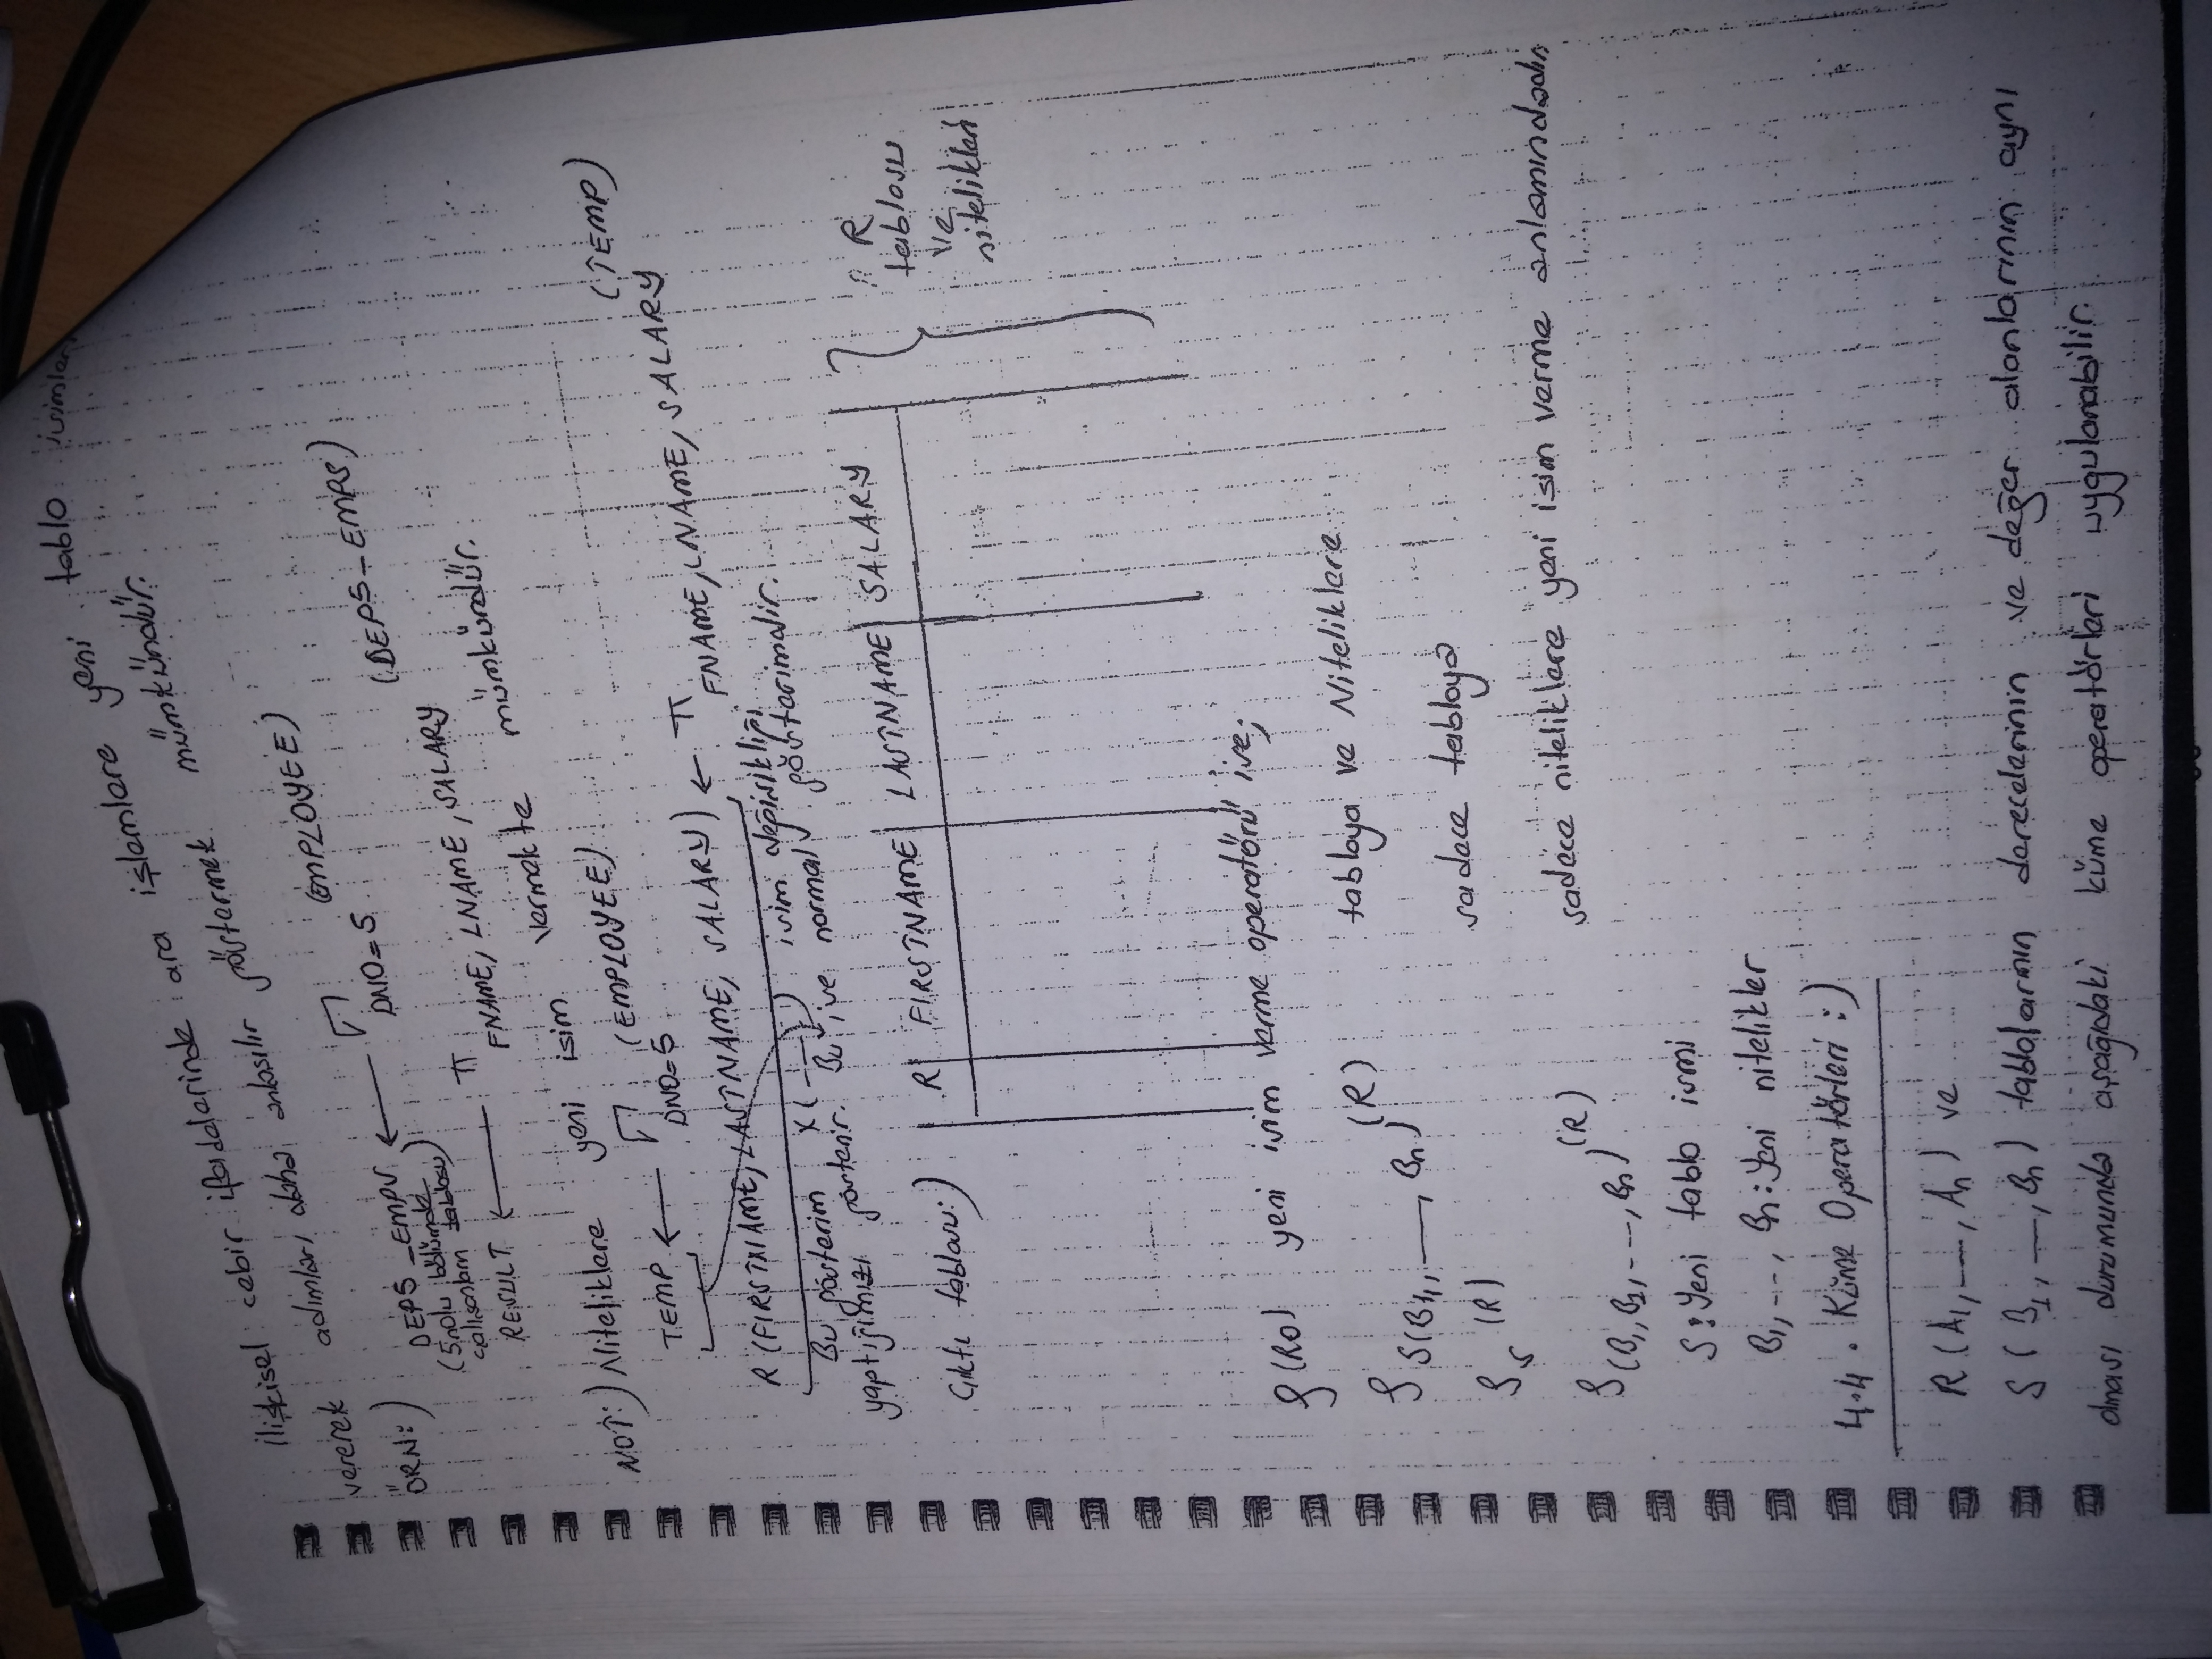 ilişkisel cebir ifadelerinde ara işlemlere yeni tablo isimleri
vererek adımları daha anlaşılır göstermek mümkündür.
ÖRN:) DEP5_EMPS ← σ DNO=5 (EMPLOYEE)
(5 nolu bölümde
çalışanların tablosu)
RESULT ← π FNAME, LNAME, SALARY (DEP5_EMPS)
NOT:) Niteliklere yeni isim vermekte mümkündür.
TEMP ← σ DNO=5 (EMPLOYEE)
R (FIRSTNAME, LASTNAME, SALARY) ← π FNAME, LNAME, SALARY (TEMP)
Bu gösterim X(—) isim değişikliği
yaptığımızı gösterir. Bu ise normal gösterimdir.
Çıktı tablosu:) R FIRSTNAME LASTNAME SALARY
R
tablosu
ve
nitelikleri
ρ (Ro) yeni isim verme operatörü ise;
ρ S(B1, —, Bn) (R) tabloya ve Niteliklere
ρ S (R) sadece tabloya
ρ (B1, B2, ---, Bn) (R) sadece niteliklere yeni isim verme anlamındadır
S: Yeni tablo ismi
B1, ---, Bn: Yeni nitelikler
4.4. Küme Operatörleri :)
R (A1, —, An) ve
S (B1, —, Bn) tablolarının derecelerinin ve değer alanlarının aynı
olması durumunda aşağıdaki küme operatörleri uygulanabilir.